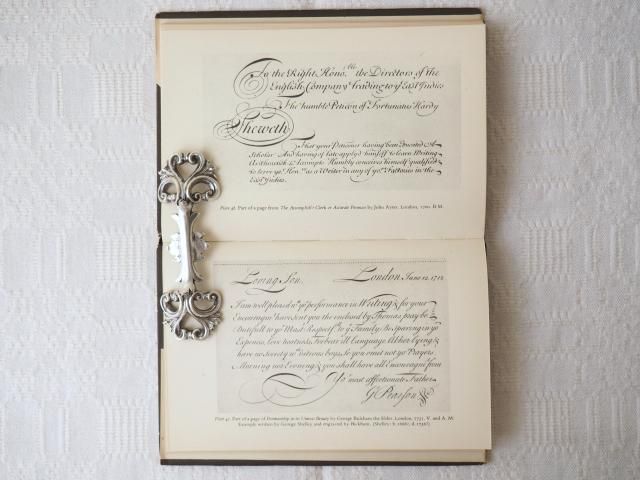 To the Right Hono.ble the Directors of the
English Company trading to ye East Indies
The humble Peticon of Fortunatus Hardy
Sheweth
That your Peticoner having been Invented A
Scholar And having of late apply'd himself to learn Writing
Arithmetick & Accompts Humbly conceives himself qualified
to serve yor Honrs as a Writer in any of yor Factories in the
East Indies.
Plate 46. Part of a page from The Accomplish't Clerk or Accurate Penman by John Ayres. London, 1700. B M.
Loving Son, London June 12, 1712.
I am well pleased wth yor performance in Writing & for your
Encouragmt have sent you the enclosed by Thomas. pray be
Dutifull to yor Mastr Respectfl to ye Family. Be sparing in yor
Expences, love neatness, Forbear ill language Abhor lying &
have no Society wth vitious boys, so you omit not yor Prayers
Morning nor Evening & you shall have all Encouragmt from
Yor most affectionate Father
G Pearson
Plate 47. Part of a page of Penmanship in its Utmost Beauty by George Bickham the Elder. London, 1731. V. and A. M.
Example written by George Shelley and engraved by Bickham. (Shelley: b. 1666?, d. 1736?)